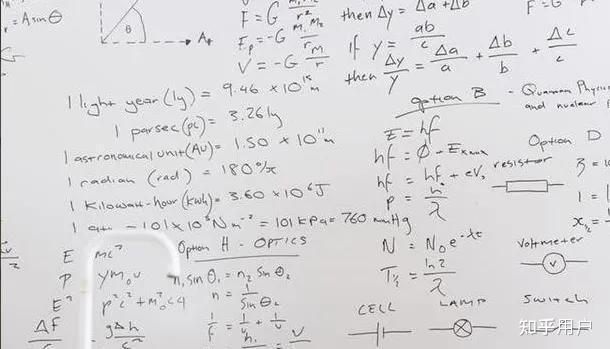 r = A sin θ
θ
F = G m₁m₂/r²
Eₚ = -G m₁m₂/r
V = -G m/r
then Δy = Δa + Δb
if y = ab/c
then Δy/y = Δa/a + Δb/b + Δc/c
F = G
1 light year (ly) = 9.46 × 10¹⁵ m
1 parsec (pc) = 3.26 ly
1 astronomical unit (AU) = 1.50 × 10¹¹ m
1 radian (rad) = 180°/π
1 kilowatt-hour (kWh) = 3.60 × 10⁶ J
1 atm = 1.01 × 10⁵ N m⁻² = 101 kPa = 760 mmHg
option B - Quantum Physics and nuclear
E = hf
hf = Φ + Eₖ max
hf = hf + eVₛ
p = h/λ
N = N₀e^-λt
T½ = ln2/λ
Option D
resistor
voltmeter
V
CELL
LAMP
Switch
Option H - OPTICS
n₁ sin θ₁ = n₂ sin θ₂
n = 1/sin θ₂
1/f = 1/u + 1/v
E mc²
p γm₀v
E² p²c² + m₀²c⁴
ΔF/f gΔh/c²
知乎用户